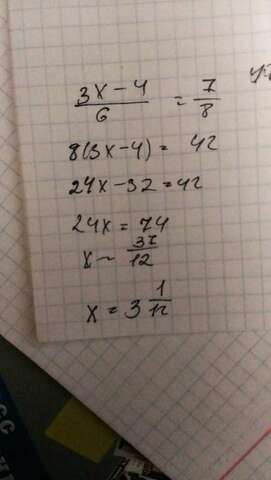 (3x-4)/6 = 7/8
8(3x-4) = 42
24x-32=42
24x = 74
x = 37/12
x = 3 1/12
СС